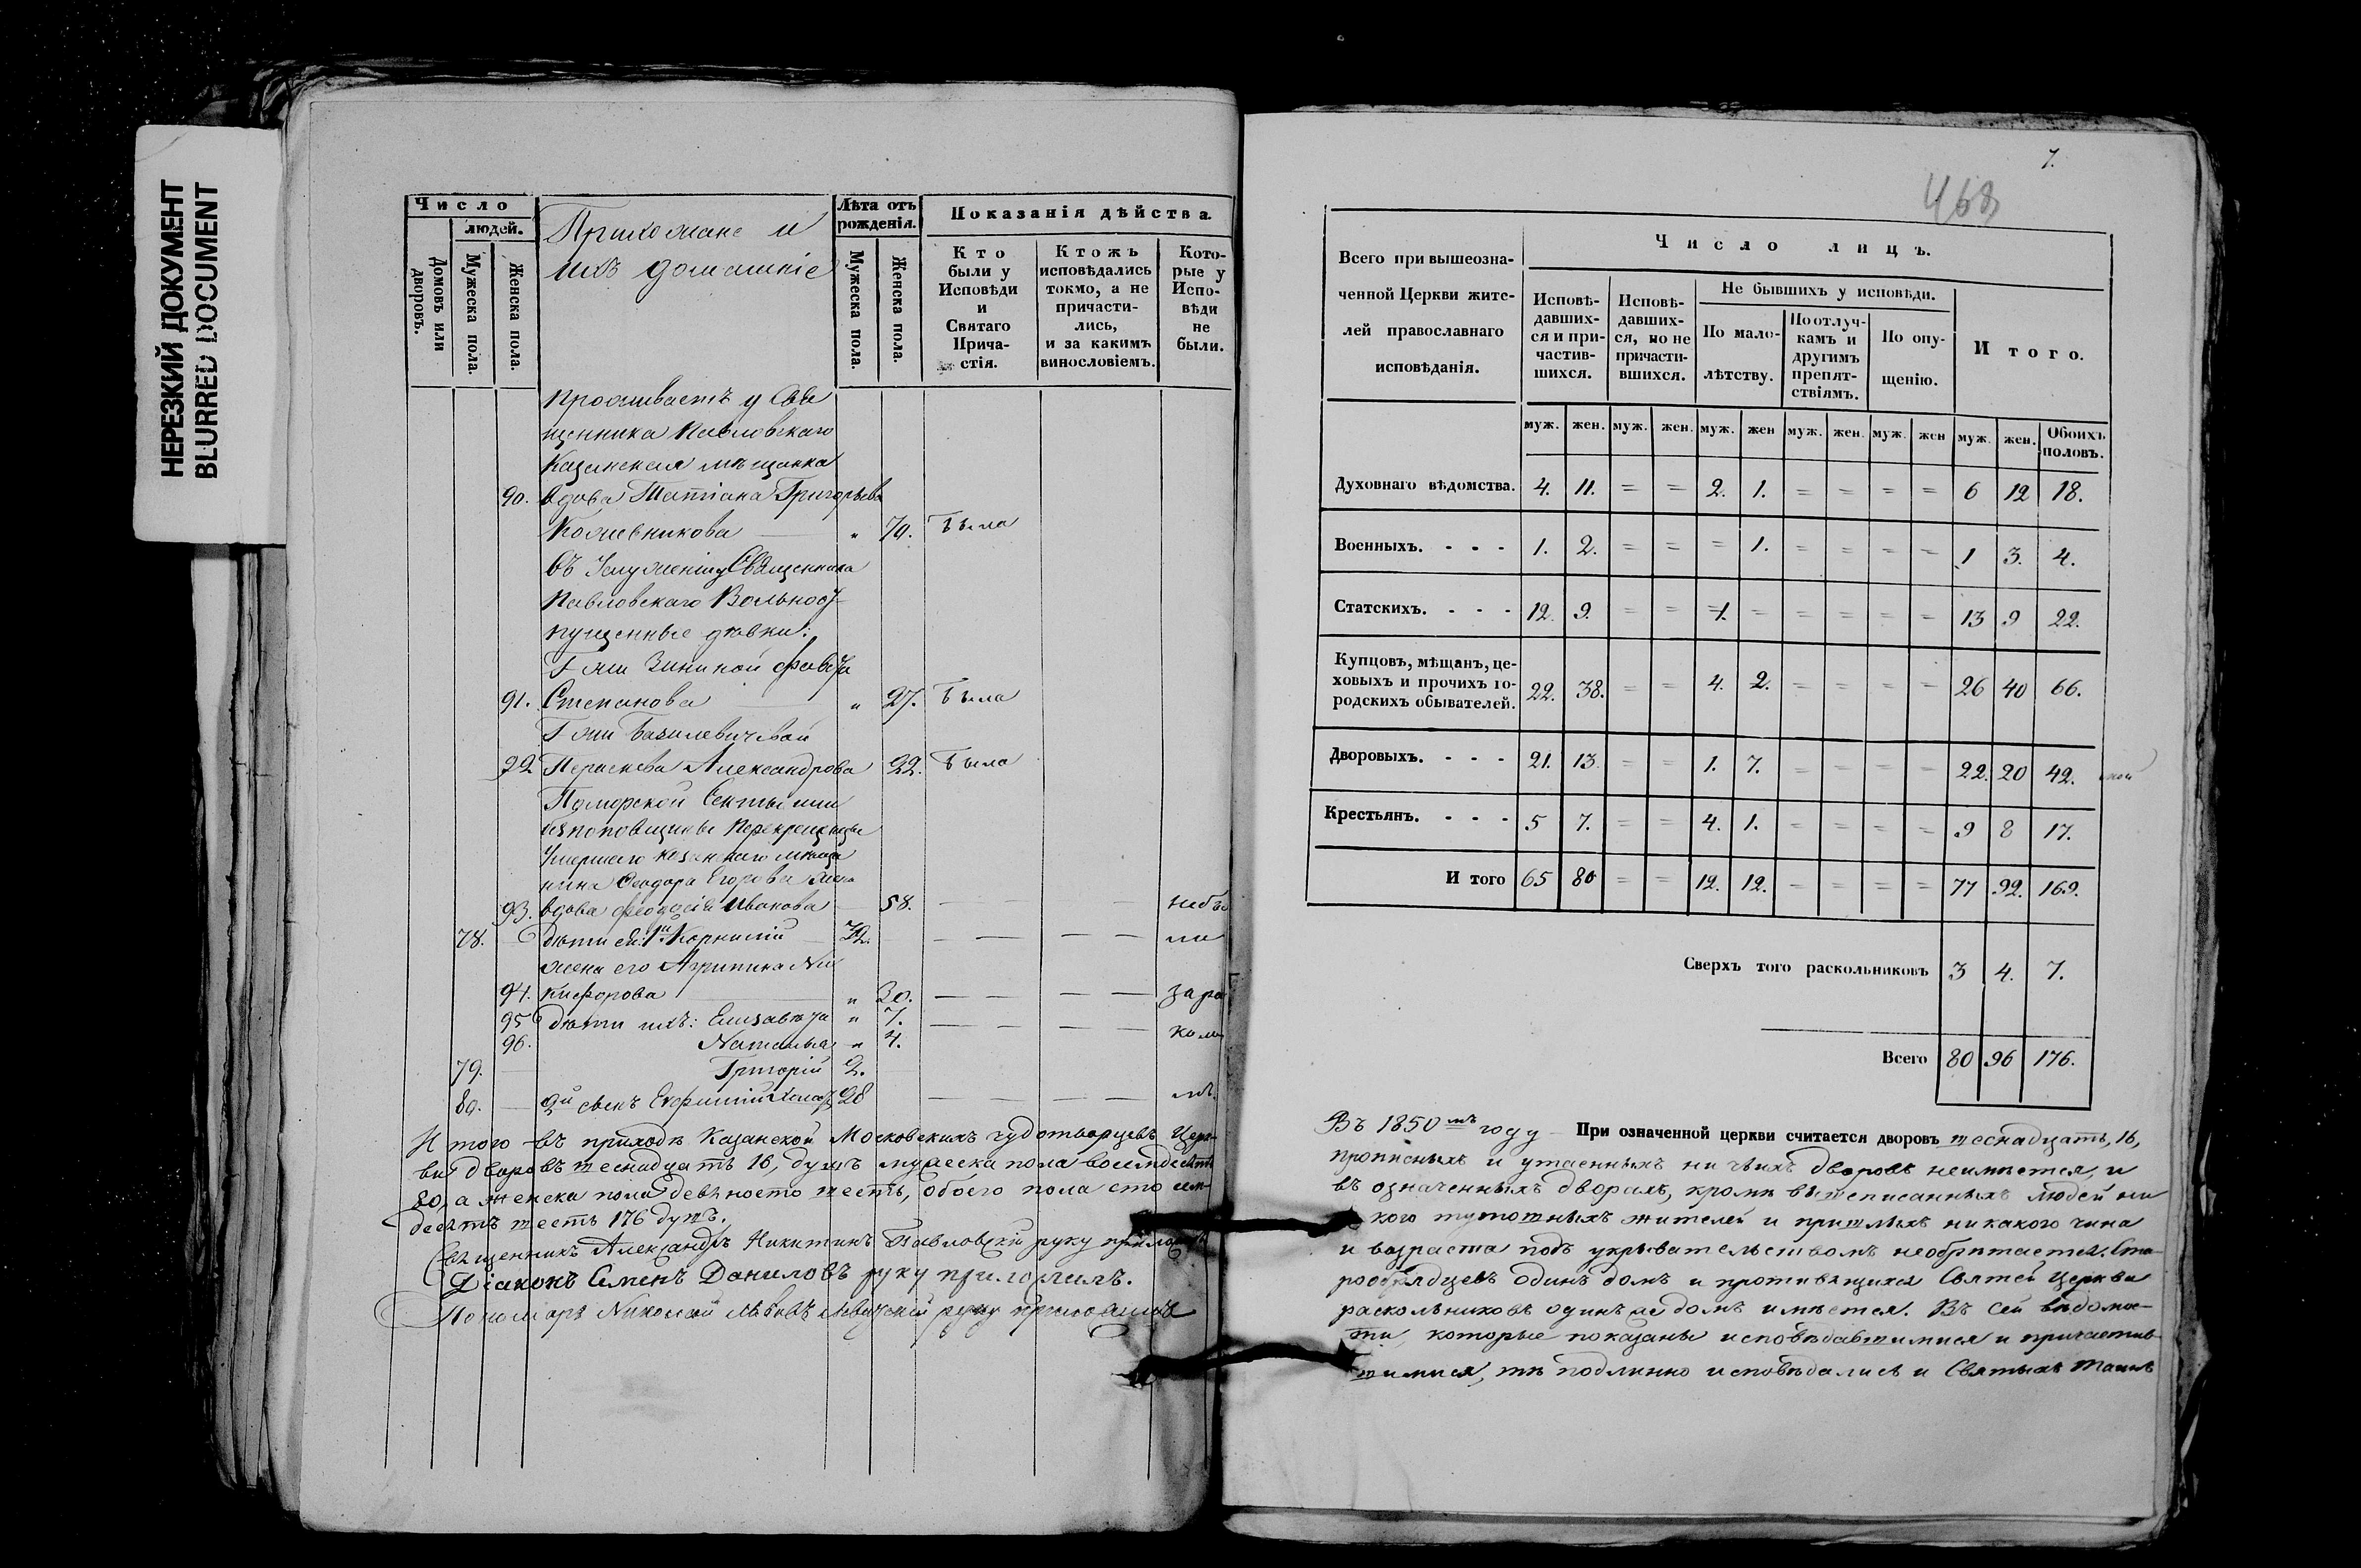 НЕРЕЗКИЙ ДОКУМЕНТ
BLURRED DOCUMENT
Число
людей.
Домовъ или дворовъ.
Мужеска пола.
Женска пола.
Прихожане и
ихъ домашніе
Лѣта отъ
рожденія.
Мужеска пола.
Женска пола.
Показанія дѣйства.
Кто
были у
Исповѣди
и
Святаго
Прича-
стія.
Ктожъ
исповѣдались
токмо, а не
причасти-
лись,
и за какимъ
винословіемъ.
Кото-
рые у
Испо-
вѣди
не
были.
проживаетъ у Свя
щенника Павловскаго
Казанская мѣщанка
90. вдова Татіана Григорьева
Кожевникова " 70. Была
въ Услуженіи у Священника
Павловскаго Вольноот-
пущенные дѣвки:
Г жи Зининой
91. Степанова " 27. Была
Г жи Базилевичевой
92 Параскева Александрова 22. Была
Поморской Секты или
безпоповщины перекрещенцы
Умершаго казанскаго мѣща
нина Ѳеодора Егорова жена
93. вдова Иванова 58. небы
78. дѣти ея: 1й Корнилій 32. ли
жена его Агрипина Ни
94. кифорова " 30. за ра
95 дѣти ихъ: Елизавета " 7. коло
96. Наталья " 4.
79. Григорій 2.
80. 2й сынъ Евфимій 28 мъ.
Итого въ приходѣ Казанской Московскихъ чудотворцевъ Церк-
ви дворовъ шеснадцать 16, душъ мужеска пола восемдесятъ
80, а женска пола девяносто шесть, обоего пола сто сем-
десятъ шесть 176 душъ.
Священникъ Александръ Никитинъ Павловскій руку приложилъ
Діаконъ Семенъ Даниловъ руку приложилъ.
Пономарь Николай Львовъ руку приложилъ
7.
468
Всего при вышеозна-
ченной Церкви жите-
лей православнаго
исповѣданія.
Число лицъ.
Исповѣ-
давших-
ся и при-
частив-
шихся.
Исповѣ-
давших-
ся, но не
причасти-
вшихся.
Не бывшихъ у исповѣди.
По мало-
лѣтству.
По отлуч-
камъ и
другимъ
препят-
ствіямъ.
По опу-
щенію.
Итого.
муж. жен. муж. жен. муж. жен муж. жен. муж. жен муж. жен. Обоихъ
половъ.
Духовнаго вѣдомства. 4. 11. = = 2. 1. = = = = 6 12 18.
Военныхъ. - - - 1. 2. = = = 1. = = = = 1 3. 4.
Статскихъ. - - - 12. 9. = = 1. = = = = = 13 9 22.
Купцовъ, мѣщанъ, це-
ховыхъ и прочихъ го-
родскихъ обывателей. 22. 38. = = 4. 2. = = = = 26 40 66.
Дворовыхъ. - - - 21. 13. = = 1. 7. = = = = 22. 20 42.
Крестьянъ. - - - 5 7. = = 4. 1. = = = = 9 8 17.
И того 65 80 = = 12. 12. = = = = 77 92. 169.
Сверхъ того раскольниковъ 3 4. 7.
Всего 80 96 176.
Въ 1850мъ году При означенной церкви считается дворовъ шеснадцать, 16,
прописныхъ и утаенныхъ ни чьихъ дворовъ неимѣется, и
въ означенныхъ дворахъ, кромѣ вышеписанныхъ людей ни
кого тутошныхъ жителей и пришлыхъ никакого чина
и возраста подъ укрывательствомъ необрѣтается. Ста-
рообрядцевъ одинъ домъ и противящихся Святей Церкви
раскольниковъ одинъ же домъ имѣется. Въ сей вѣдомос-
ти, которые показаны исповѣдавшимися и причастив-
шимися, тѣ подлинно исповѣдались и Святыхъ Таинъ